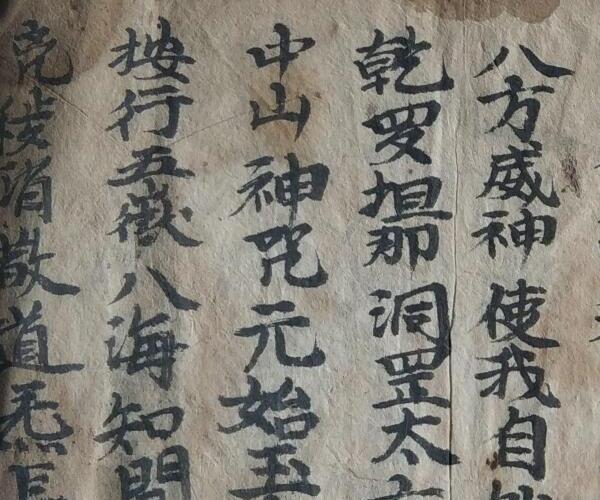 八方威神使我自
乾罗坦那洞罡太
中山神咒元始玉
按行五嶽八海知聞
穢消散道炁長